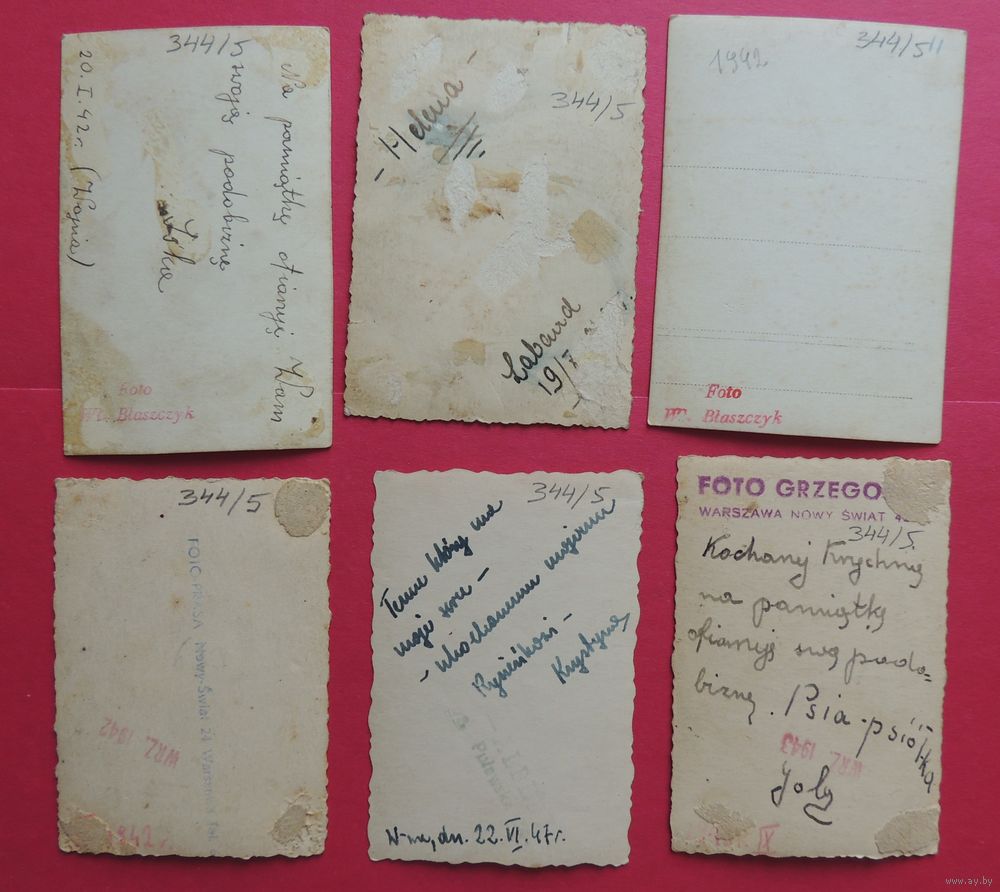 344/5
Na pamiątkę ofiaruję Wam
swoją podobiznę
20.I.42r. (Wojna)
Foto
Wł. Błaszczyk
344/5
- Helena -
Laband
19/7
344/5
1942
Foto
Wł. Błaszczyk
344/5
FOTO PRASA Nowy-Świat
Warszawa
WRZ. 1942
1942
344/5
Temu który ma
moje serce -
- ukochanemu mojemu
Rysieńkowi -
Krystyna
W-wa, dn. 22.VI.47r.
FOTO GRZEGO
WARSZAWA NOWY ŚWIAT
344/5
Kochanej Krychnę
na pamiątkę
ofiaruję swą podo=
biznę. Psia-psiółka
WRZ. 1943
IX
www.ay.by